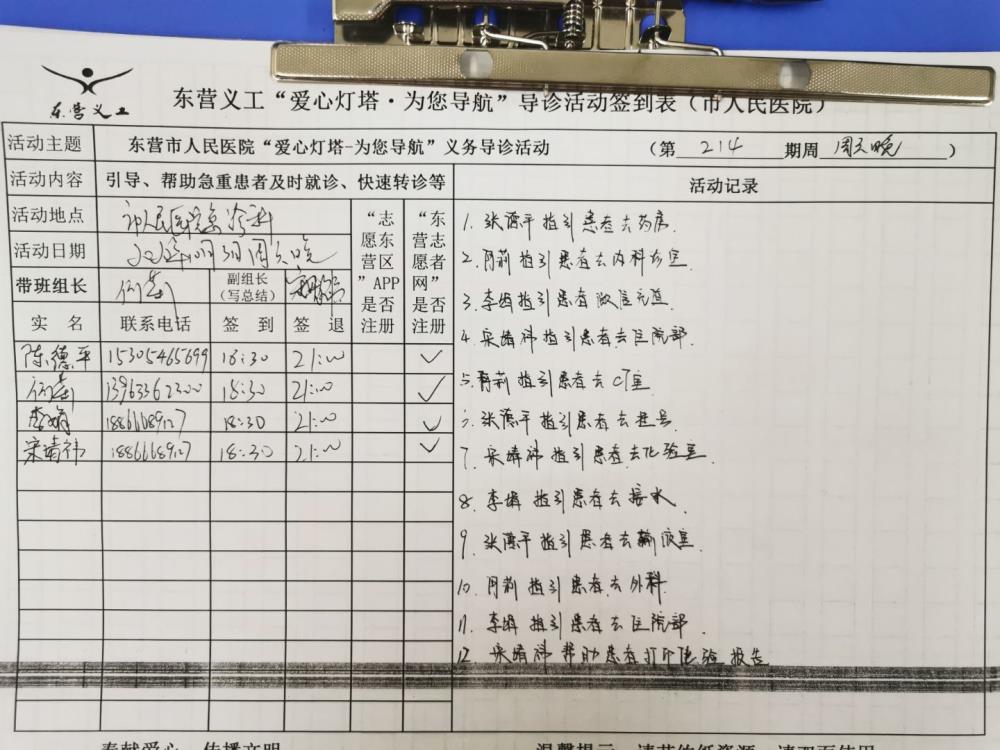 东营义工
东营义工“爱心灯塔·为您导航”导诊活动签到表（市人民医院）
活动主题 东营市人民医院“爱心灯塔-为您导航”义务导诊活动 （第 214 期周 周六晚 ）
活动内容 引导、帮助急重患者及时就诊、快速转诊等 活动记录
活动地点 市人民医院急诊科
活动日期
带班组长 副组长（写总结）
“志愿东营区”APP是否注册
“东营志愿者网”是否注册
实 名 联系电话 签 到 签 退
陈德平 15305465699 18:30 21:00 ✓
13963362300 18:30 21:00 ✓
李娟 18866689127 18:30 21:00 ✓
宋靖祎 18866689127 18:30 21:00 ✓
1. 张德平 指引患者去药房.
2. 指引患者去内科
3. 李娟指引患者微信充值
4. 宋靖祎指引患者去住院部.
5. 指引患者去CT室
6. 张德平 指引患者去挂号
7. 宋靖祎 指引患者去化验室.
8. 李娟 指引患者去接水
9. 张德平 指引患者去输液室.
10. 指引患者去外科
11. 李娟 指引患者去住院部.
12 宋靖祎 帮助患者打印化验报告
奉献爱心 传播文明 温馨提示 请节约纸资源 请双面使用